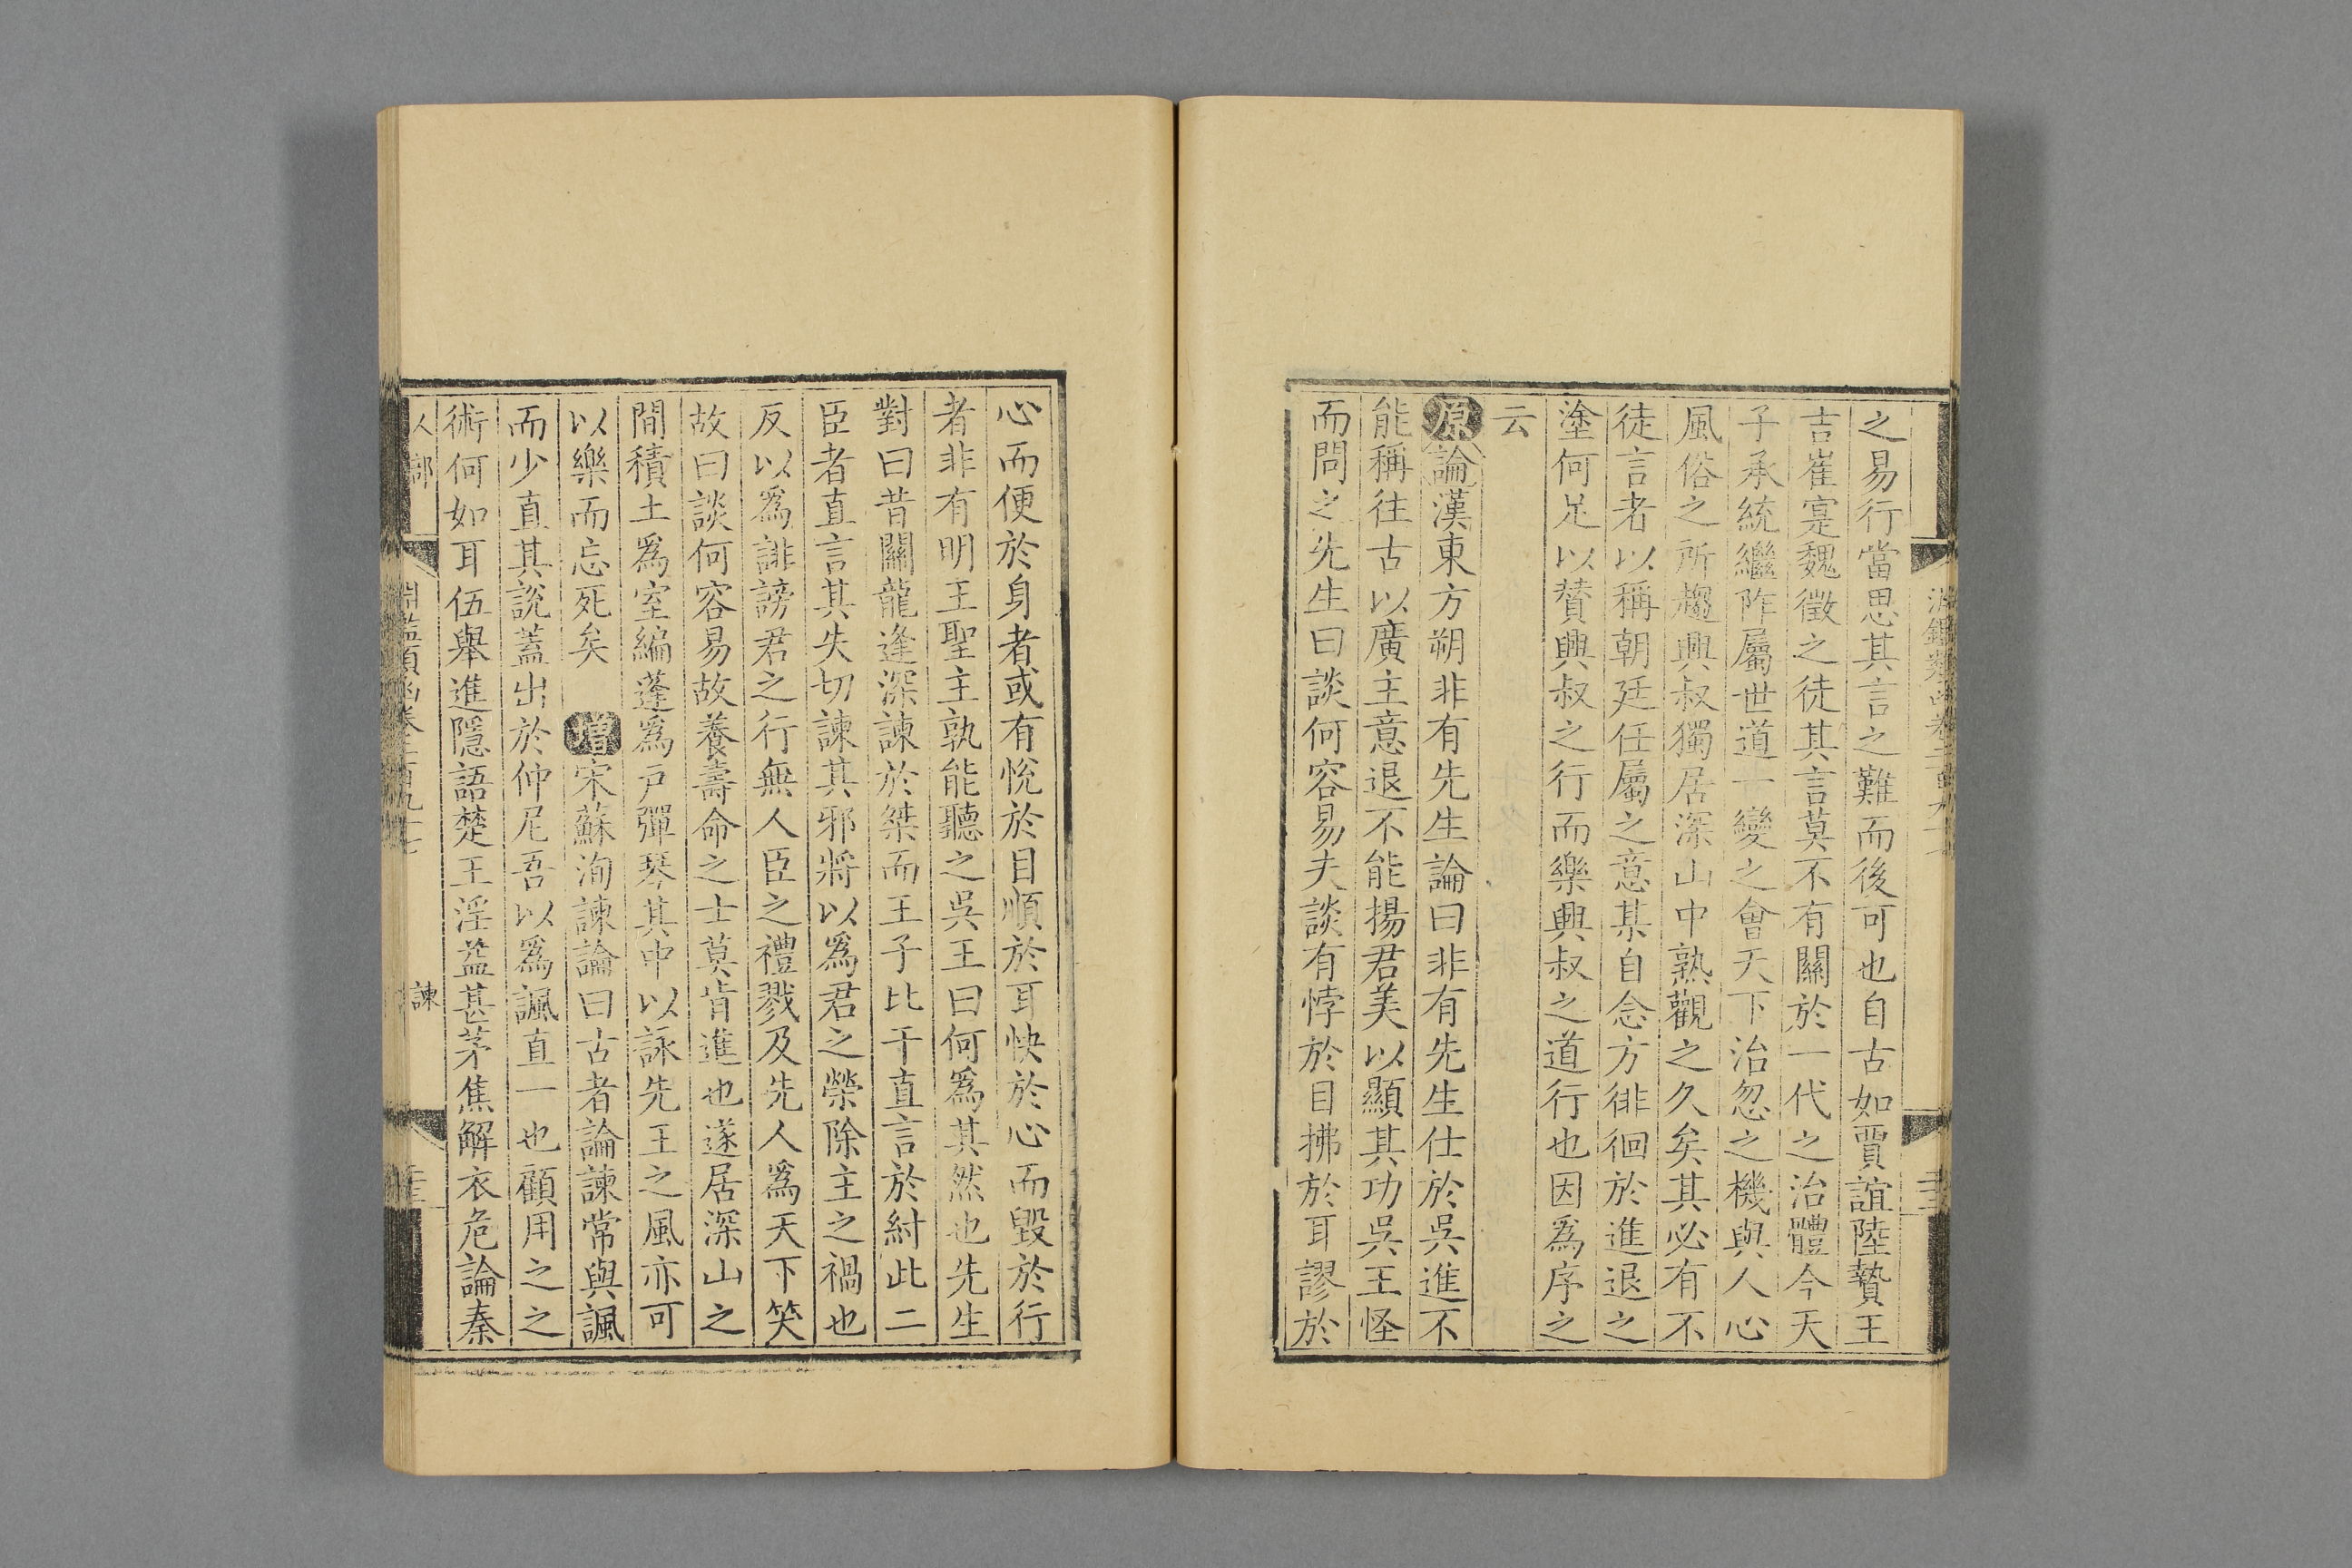 之易行當思其言之難而後可也自古如賈誼陸贄王
吉崔寔魏徵之徒其言莫不有關於一代之治體今天
子承統繼阼屬世道一變之會天下治忽之機與人心
風俗之所趨興叔獨居深山中熟觀之久矣其必有不
徒言者以稱朝廷任屬之意某自念方徘徊於進退之
塗何足以贊興叔之行而樂興叔之道行也因爲序之
云
原論漢東方朔非有先生論曰非有先生仕於吳進不
能稱往古以廣主意退不能揚君美以顯其功吳王怪
而問之先生曰談何容易夫談有悖於目拂於耳謬於
心而便於身者或有悅於目順於耳快於心而毀於行
者非有明王聖主孰能聽之吳王曰何爲其然也先生
對曰昔關龍逢深諫於桀而王子比干直言於紂此二
臣者直言其失切諫其邪將以爲君之榮除主之禍也
反以爲誹謗君之行無人臣之禮戮及先人爲天下笑
故曰談何容易故養壽命之士莫肯進也遂居深山之
間積土爲室編蓬爲戶彈琴其中以詠先王之風亦可
以樂而忘死矣 增宋蘇洵諫論曰古者論諫常與諷
而少直其說蓋出於仲尼吾以爲諷直一也顧用之之
術何如耳伍舉進隱語楚王淫益甚茅焦解衣危論秦
人部 淵鑑類函卷二百九十七 諫